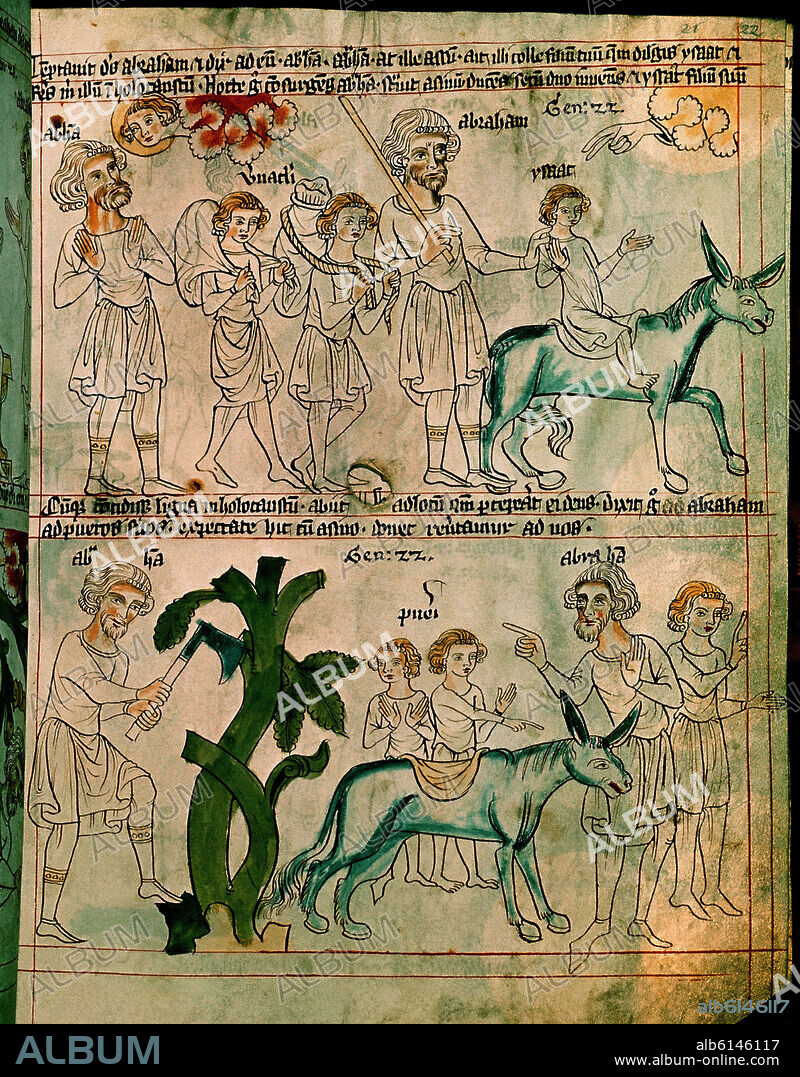 21 22
Temptavit d's abraham & dix ad eu · abha · abha · at ille assu · ait illi tolle filiu tuu que diligis ysaac &
in illu holocaustu · Nocte g consurgens abha · stvit asinu ducens secu duo iuvenes & ysaac filiu suu
abha
abraham
Gen: 22
ysaac
Cuq concidisset ligna i holocaustu · abiit ad locu que pceperat ei deus · dixit g abraham
ad pueros suos expectate hic cu asino · donec revertamur ad vos ·
abra ha
Gen: 22.
abraha
pueri
ALBUM
alb6146117
ALBUM
alb6146117
www.album-online.com